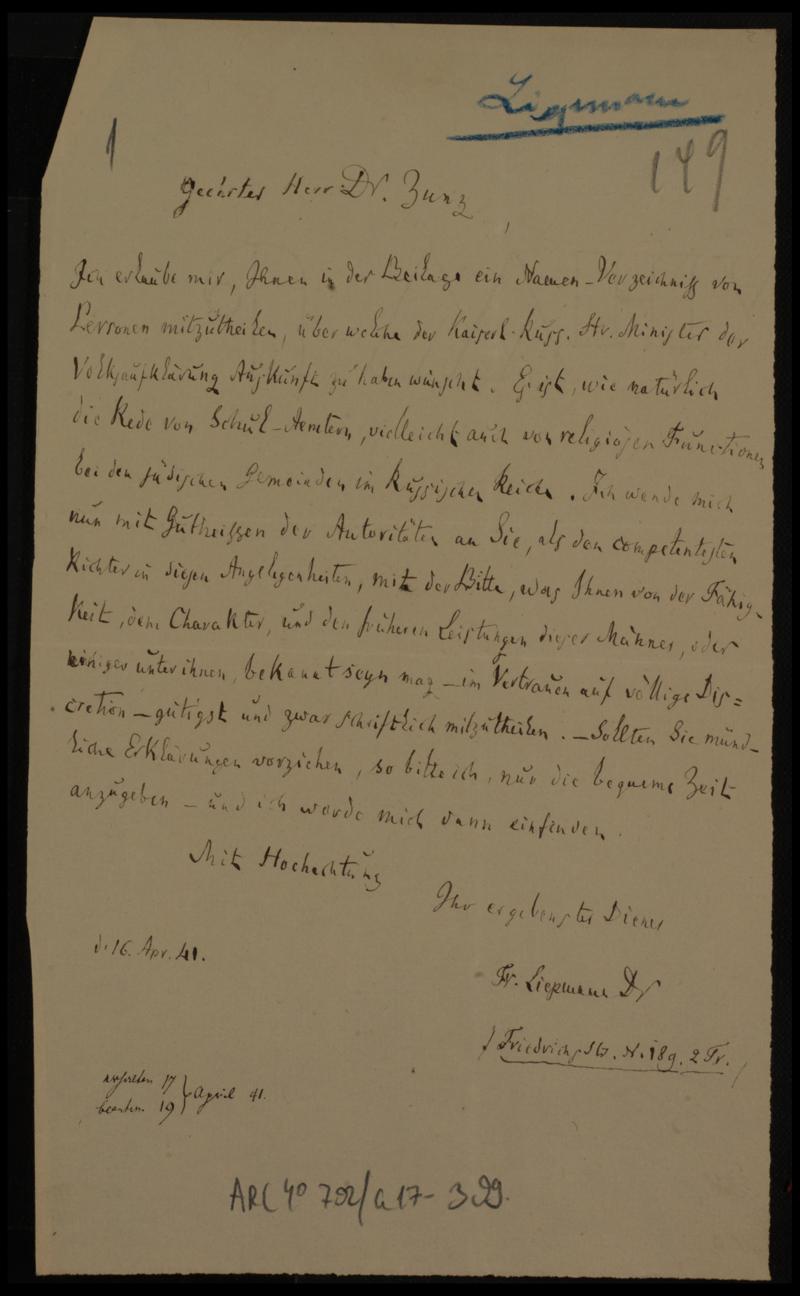 Liepmann
149
1
Geehrter Herr Dr. Zunz,
Ich erlaube mir, Ihnen in der Beilage ein Namen-Verzeichniss von
Personen mitzutheilen, über welche der Kaiserl. Russ. Hr. Minister der
Volksaufklärung Auskunft zu haben wünscht. Es ist, wie natürlich
die Rede von Schul-Aemtern, vielleicht auch von religiösen Functionen
bei den jüdischen Gemeinden im Russischen Reiche. Ich wende mich
nun mit Gutheissen der Autoritäten an Sie, als den competentesten
Richter in diesen Angelegenheiten, mit der Bitte, was Ihnen von der Fähig-
keit, dem Charakter, und den früheren Leistungen dieser Männer, oder
einiger unter ihnen, bekannt seyn mag – im Vertrauen auf völlige Dis=
cretion – gütigst und zwar schriftlich mitzutheilen. – Sollten Sie münd-
liche Erklärungen vorziehen, so bitte ich, nur die bequeme Zeit
anzugeben – und ich werde mich dann einfinden.
Mit Hochachtung
Ihr ergebenster Diener
d. 16. Apr. 41.
Fr. Liepmann Dr
/ Friedrichs Str. N. 189. 2 Tr. /
erhalten 17
beantw. 19 } April 41.
ARC 4° 792/G17-329.